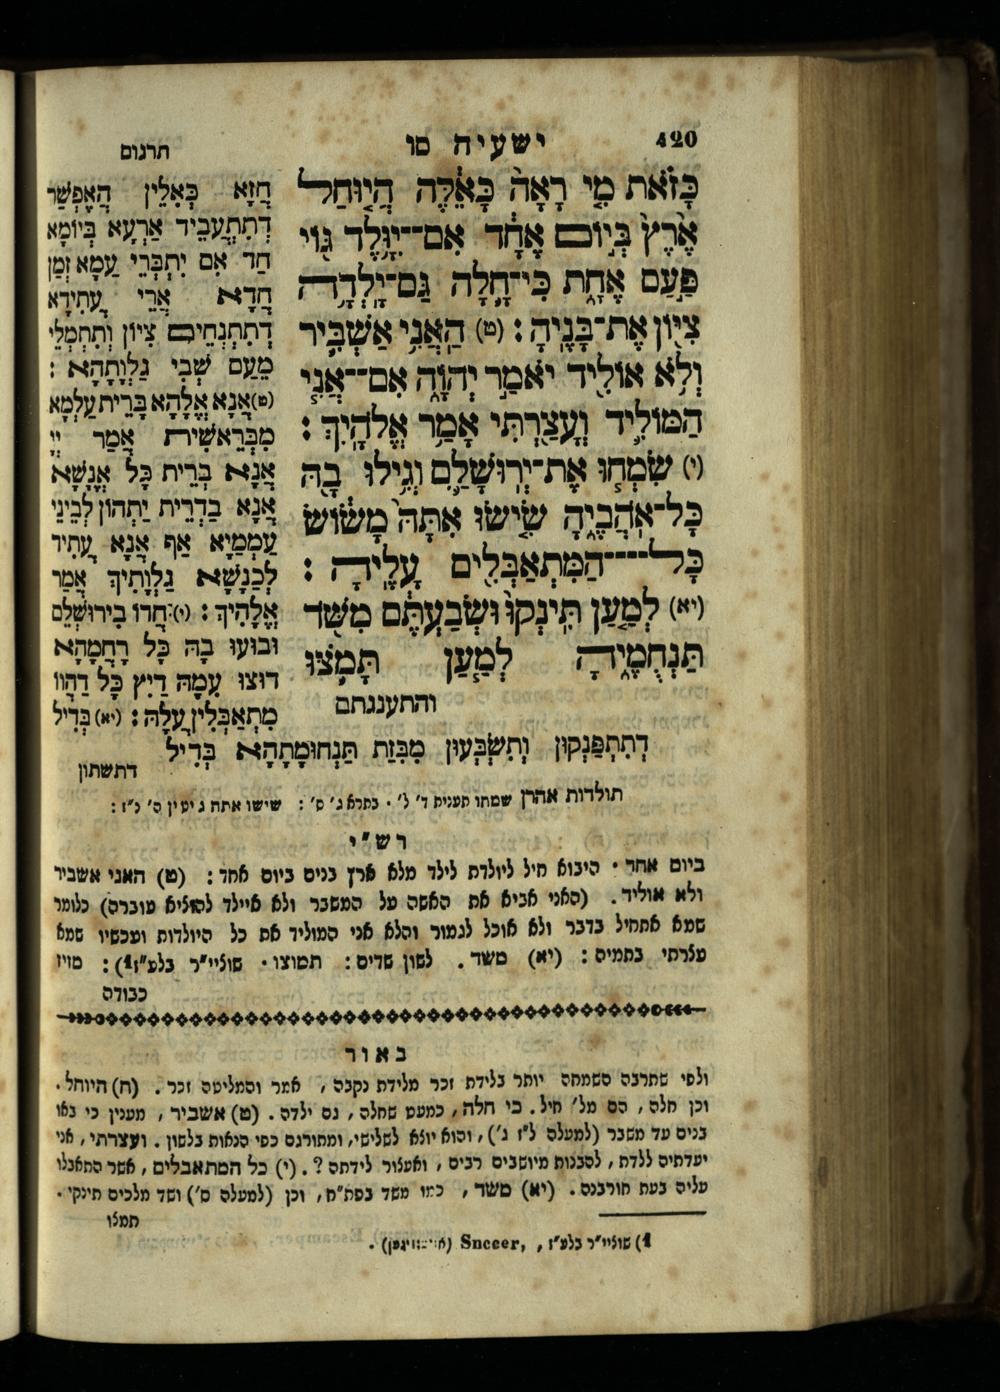 420
ישעיה סו
תרגום
כָּזֹאת מִי רָאָה כָּאֵלֶּה הֲיוּחַל
אֶרֶץ בְּיוֹם אֶחָד אִם־יִוָּלֵד גּוֹי
פַּעַם אֶחָת כִּי־חָלָה גַּם־יָלְדָה
צִיּוֹן אֶת־בָּנֶיהָ : (ט) הַאֲנִי אַשְׁבִּיר
וְלֹא אוֹלִיד יֹאמַר יְהוָֹה אִם־אֲנִי
הַמּוֹלִיד וְעָצַרְתִּי אָמַר אֱלֹהָיִךְ :
(י) שִׂמְחוּ אֶת־יְרוּשָׁלִַם וְגִילוּ בָהּ
כָּל־אֹהֲבֶיהָ שִׂישׂוּ אִתָּהּ מָשׂוֹשׂ
כָּל־הַמִּתְאַבְּלִים עָלֶיהָ :
(יא) לְמַעַן תִּינְקוּ וּשְׂבַעְתֶּם מִשֹּׁד
תַּנְחֻמֶיהָ לְמַעַן תָּמֹצּוּ
והתענגתם
חֲזָא כְּאִלֵּין הַאֶפְשַׁר
דְתִתְעֲבֵיד אַרְעָא בְּיוֹמָא
חַד אִם יִתְבְּרֵי עַמָא זְמַן
חֲדָא אֲרֵי עֲתִידָא
דְתִתְנְחֵים צִיּוֹן וְתִתְמְלֵי
מֵעַם שְׁבִי גַלְוָתָהָא :
(ט) אֲנָא אֱלָהָא בָּרֵית עַלְמָא
מִבְּרֵאשִׁית אֲמַר יְיָ
אֲנָא בְּרֵית כָּל אֲנָשָׁא
אֲנָא בַדְרֵית יַתְהוֹן לְבֵינֵי
עַמְמַיָא אַף אֲנָא עֲתִיד
לְכַנָשָׁא גַלְוָתִיךְ אֲמַר
אֱלָהִיךְ : (י) חֲדוּ בִירוּשְׁלֵם
וּבוּעוּ בָהּ כָּל רַחֲמָהָא
דוּצוּ עִמָהּ דֵיץ כָּל דַהֲווֹ
מִתְאַבְּלִין עֲלָהּ : (יא) בְּדִיל
דְתִתְפַּנְקוּן וְתִשְׂבְּעוּן מִבִּזַת תַּנְחוּמָתָהָא בְּדִיל
דתשתון
תולדות אהרן שמחו תענית ד' ל' . בתרא ג' ס' : שישו אתה גיטין ס' נ"ז :
רש"י
ביום אחד . היבוא חיל ליולדת לילד מלא ארץ בנים ביום אחד : (ט) האני אשביר
ולא אוליד . (האני אביא את האשה על המשבר ולא איילד להוציא עוברה) כלומר
שמא אתחיל בדבר ולא אוכל לגמור והלא אני המוליד את כל היולדות ועכשיו שמא
עצרתי בתמיה : (יא) משד . לשון שדים : תמוצו . שוליי"ר בלע"ז1) : מזיז
כבודה
באור
ולפי שתרבה השמחה יותר בלידת זכר מלידת נקבה , אמר והמליטה זכר . (ח) היוחל .
וכן חלה , הם מל' חיל . כי חלה , כמעט שחלה , גם ילדה . (ט) אשביר , מענין כי באו
בנים עד משבר (למעלה ל"ז ג') , והוא יוצא לשלישי , ומתורגם כפי הנאות בלשון . ועצרתי , אני
יעדתיה ללדת , להבנות מיושבים רבים , ואעצור לידתה ? . (י) כל המתאבלים , אשר התאבלו
עליה בעת חורבנה . (יא) משד , כמו משד בפת"ח , וכן (למעלה ס') ושד מלכים תינקי .
תמצו
1) שוליי"ר בלע"ז , Succer,